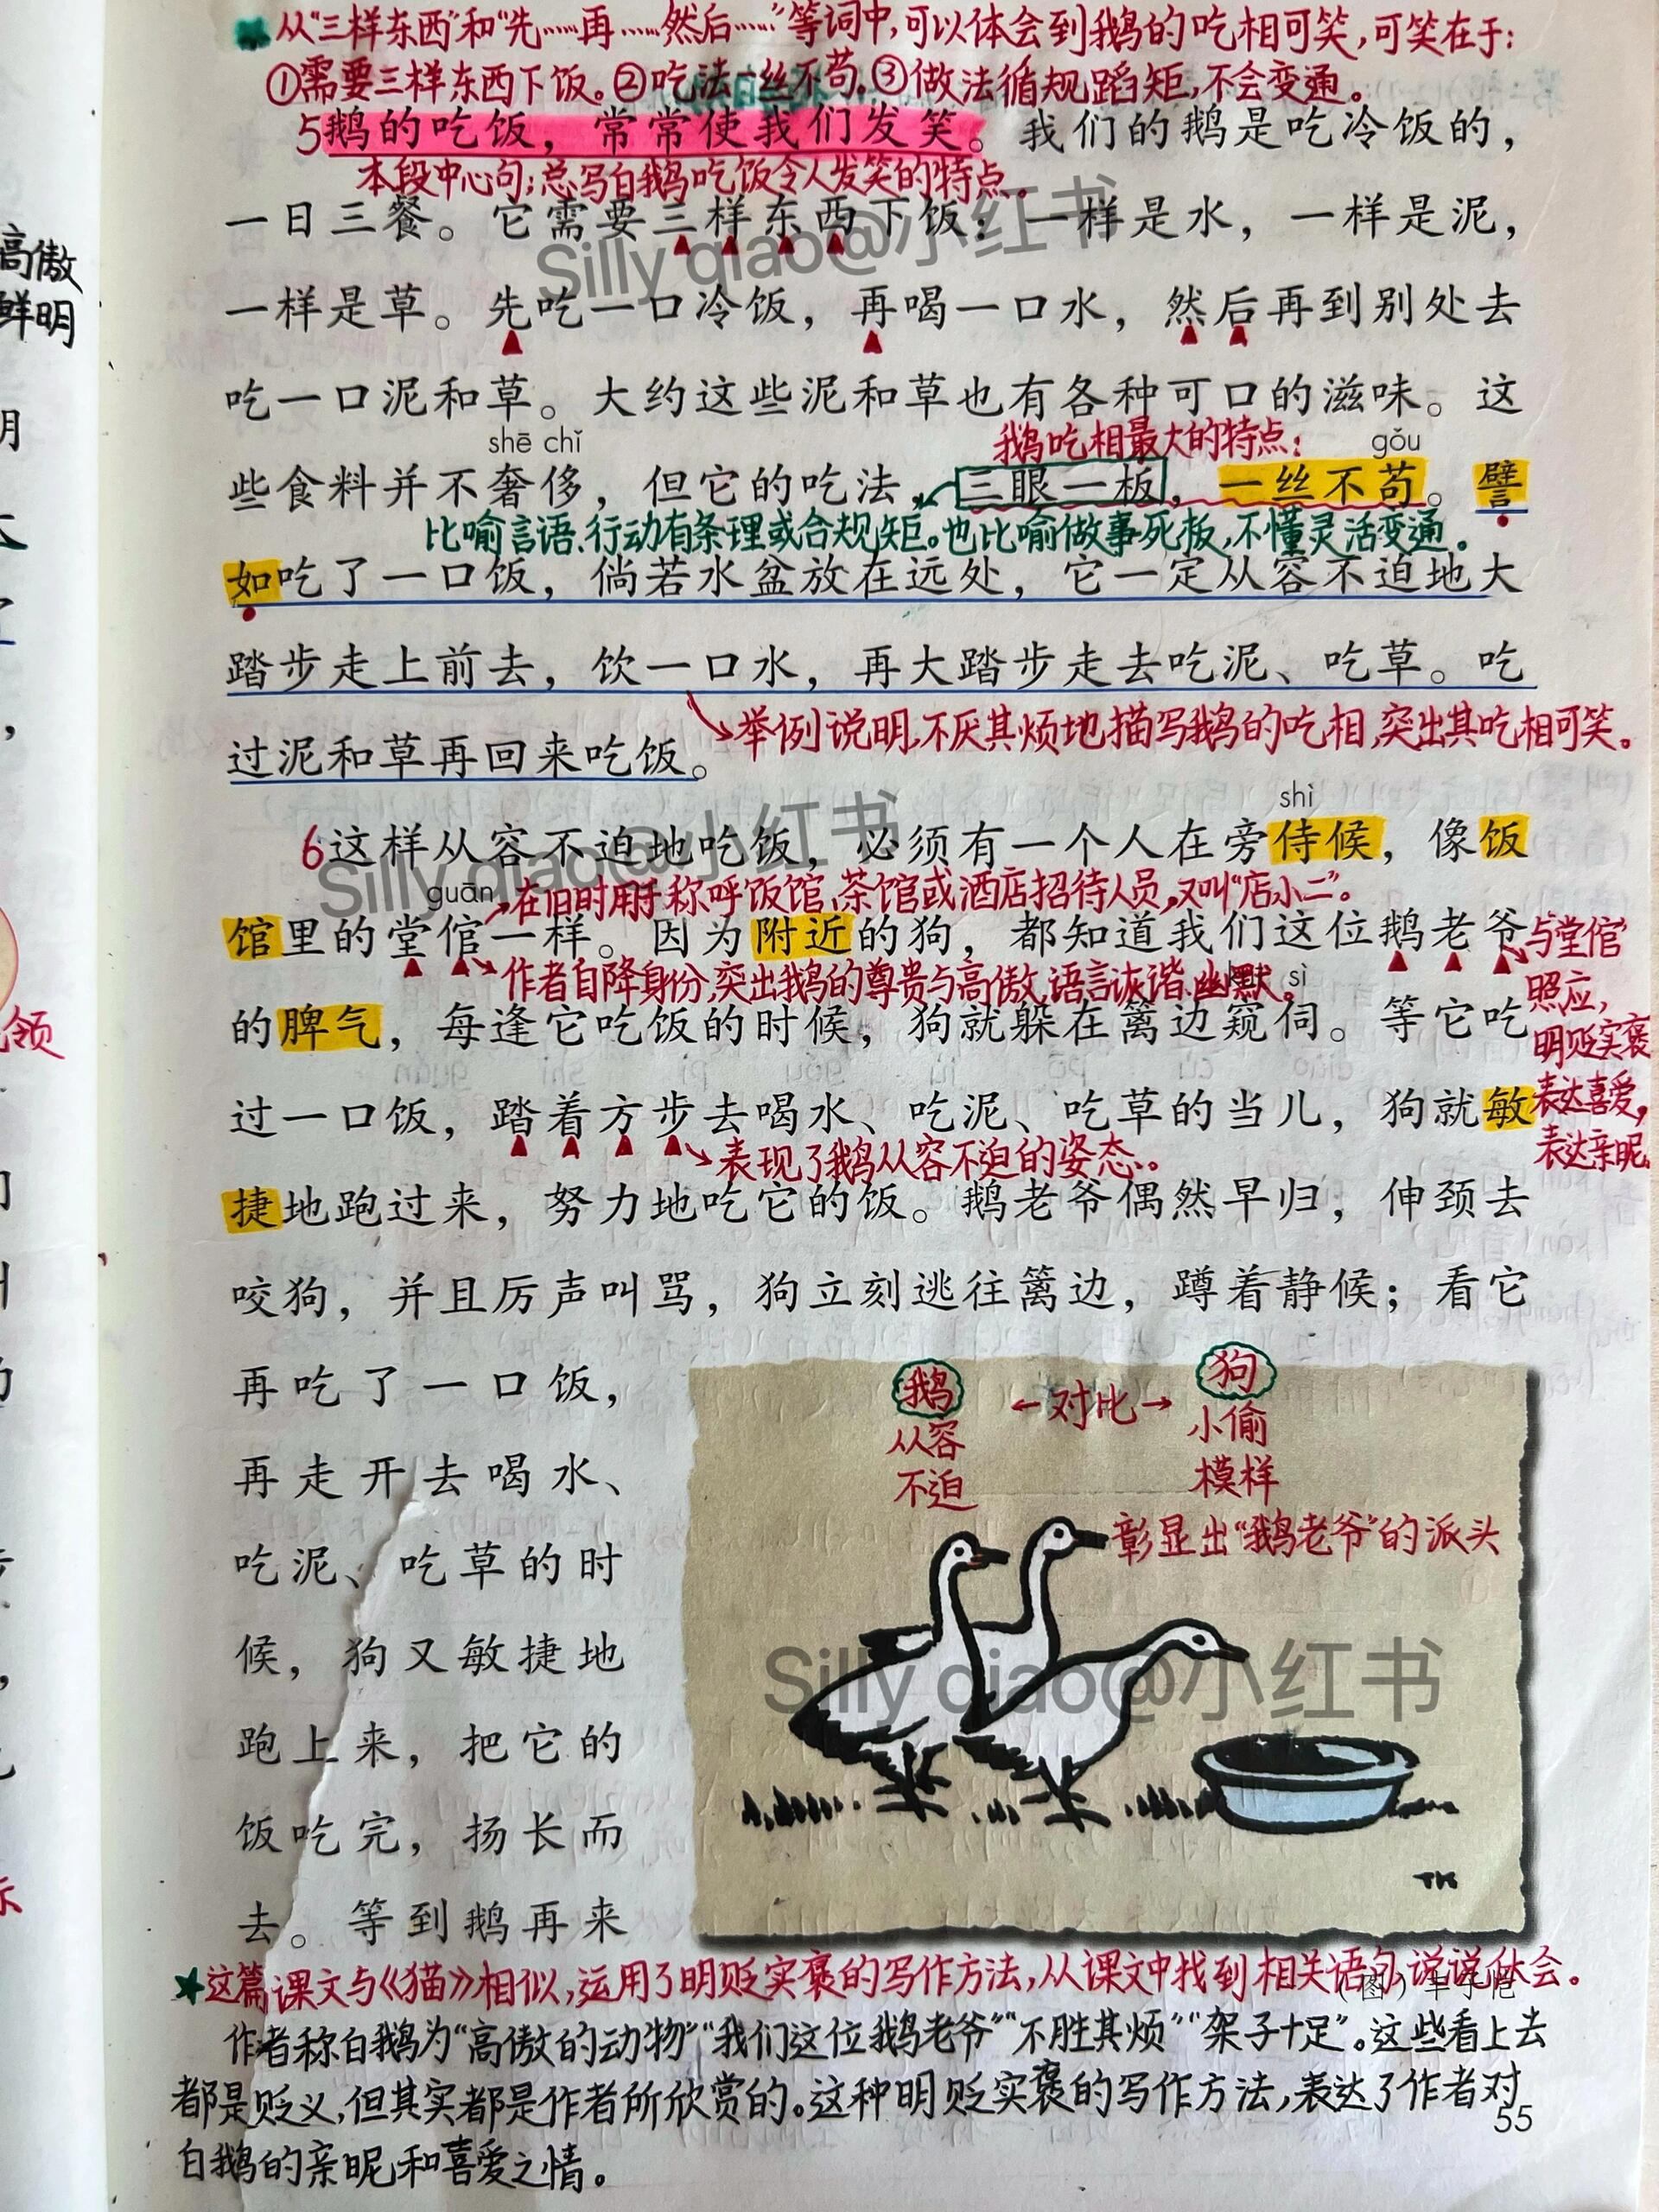 从“三样东西”和“先……再……然后……”等词中,可以体会到鹅的吃相可笑,可笑在于:
①需要三样东西下饭。②吃法一丝不苟。③做法循规蹈矩,不会变通。
5鹅的吃饭，常常使我们发笑。我们的鹅是吃冷饭的，
本段中心句:总写白鹅吃饭令人发笑的特点。
一日三餐。它需要三样东西下饭：一样是水，一样是泥，
Silly qiao@小红书
一样是草。先吃一口冷饭，再喝一口水，然后再到别处去
高傲
鲜明
吃一口泥和草。大约这些泥和草也有各种可口的滋味。这
shē chǐ
鹅吃相最大的特点:
gǒu
些食料并不奢侈，但它的吃法，三眼一板，一丝不苟。譬
比喻言语、行动有条理或合规矩。也比喻做事死板,不懂灵活变通。
如吃了一口饭，倘若水盆放在远处，它一定从容不迫地大
踏步走上前去，饮一口水，再大踏步走去吃泥、吃草。吃
举例说明,不厌其烦地描写鹅的吃相,突出其吃相可笑。
过泥和草再回来吃饭。
shì
6这样从容不迫地吃饭，必须有一个人在旁侍候，像饭
Silly qiao@小红书
guān
在旧时用于称呼饭馆、茶馆或酒店招待人员,又叫“店小二”。
馆里的堂倌一样。因为附近的狗，都知道我们这位鹅老爷
与堂倌
照应,
明贬实褒
表达喜爱,
表达亲昵
作者自降身份,突出鹅的尊贵与高傲,语言诙谐幽默。
sì
的脾气，每逢它吃饭的时候，狗就躲在篱边窥伺。等它吃
过一口饭，踏着方步去喝水、吃泥、吃草的当儿，狗就敏
表现了鹅从容不迫的姿态。
捷地跑过来，努力地吃它的饭。鹅老爷偶然早归，伸颈去
咬狗，并且厉声叫骂，狗立刻逃往篱边，蹲着静候；看它
再吃了一口饭，
再走开去喝水、
吃泥、吃草的时
候，狗又敏捷地
跑上来，把它的
饭吃完，扬长而
去。等到鹅再来
鹅 ←对比→ 狗
从容
不迫
小偷
模样
彰显出“鹅老爷”的派头
Silly qiao@小红书
TK
★这篇课文与《猫》相似,运用了明贬实褒的写作方法,从课文中找到相关语句,说说体会。
（图）丰子恺
作者称白鹅为“高傲的动物”“我们这位鹅老爷”“不胜其烦”“架子十足”。这些看上去
都是贬义,但其实都是作者所欣赏的。这种明贬实褒的写作方法,表达了作者对
白鹅的亲昵和喜爱之情。
55